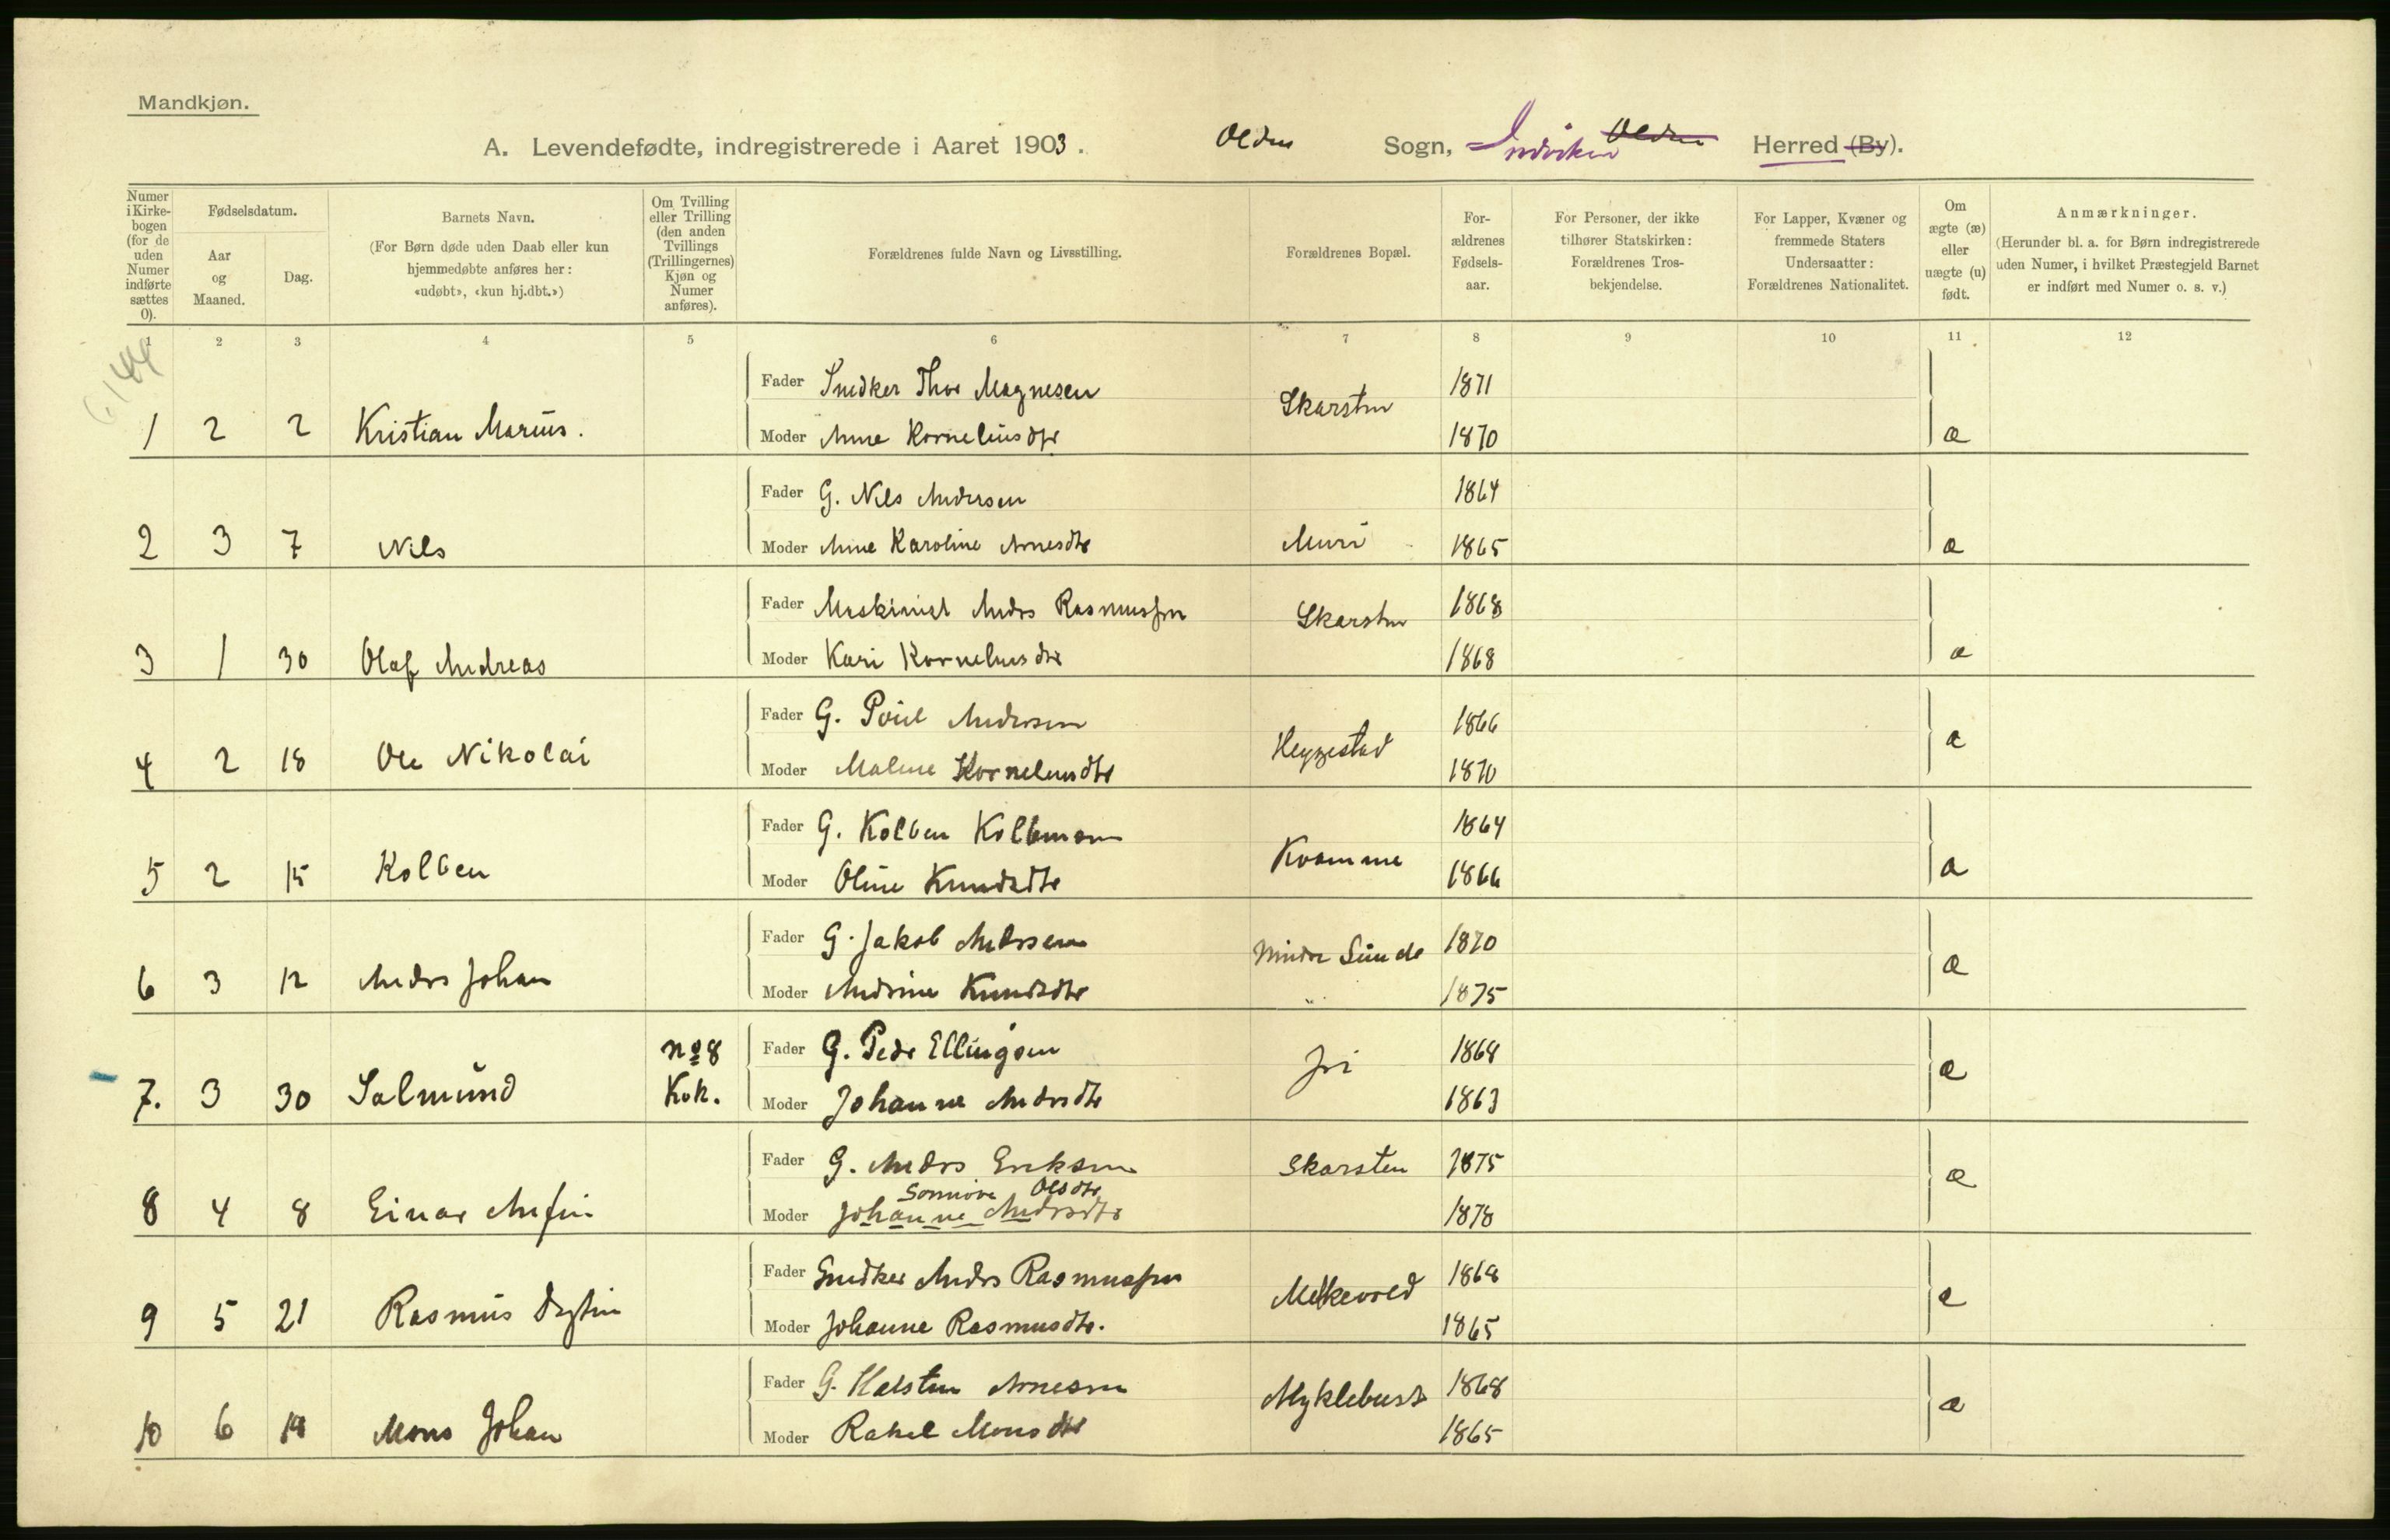 Mandkjøn.
A. Levendefødte, indregistrerede i Aaret 1903. Olden Sogn, Indviken Olden Herred (By).
Numer i Kirkebogen (for de uden Numer indførte sættes 0).
Fødselsdatum.
Aar og Maaned.
Dag.
Barnets Navn.
(For Børn døde uden Daab eller kun hjemmedøbte anføres her: «udøbt», «kun hj.dbt.»)
Om Tvilling eller Trilling (den anden Tvillings (Trillingernes) Kjøn og Numer anføres).
Forældrenes fulde Navn og Livsstilling.
Forældrenes Bopæl.
Forældrenes Fødselsaar.
For Personer, der ikke tilhører Statskirken: Forældrenes Trosbekjendelse.
For Lapper, Kvæner og fremmede Staters Undersaatter: Forældrenes Nationalitet.
Om ægte (æ) eller uægte (u) født.
Anmærkninger.
(Herunder bl. a. for Børn indregistrerede uden Numer, i hvilket Præstegjeld Barnet er indført med Numer o. s. v.)
1 2 3 4 5 6 7 8 9 10 11 12
Fader Snedker Thor Magnesen Skarsten 1871
1 2 2 Kristian Marius. Moder Anne Korneliusdtr 1870 æ
Fader G. Nils Andersen 1864
2 3 7 Nils Moder Anne Karoline Arnesdtr Muri 1865 æ
Fader Maskinist Anders Rasmussen Skarsten 1868
3 1 30 Olaf Andreas Moder Kari Korneliusdtr 1868 æ
Fader G. Poul Andersen 1866
4 2 18 Ole Nikolai Moder Malene Korneliusdtr Heggestad 1870 æ
Fader G. Kolben Kolbensen 1864
5 2 15 Kolben Moder Oline Knudsdtr Kvamme 1866 æ
Fader G. Jakob Andersen Mindre Sunde 1870
6 3 12 Anders Johan Moder Andrine Knudsdtr " 1875 æ
No 8 Fader G. Peder Ellingsen Jri 1868
7. 3 30 Salmund Kvk. Moder Johanne Andersdtr 1863 æ
Fader G. Anders Eriksen Skarsten 1875
Sønnøve Olsdtr
8 4 8 Einar Anfin Moder Johanne Andersdtr 1878 æ
Fader Snedker Anders Rasmussen Melkevold 1868
9 5 21 Rasmus Moder Johanne Rasmusdtr. 1865 æ
Fader G. Halsten Arnesen Myklebust 1868
10 6 Mons Johan Moder Rakel Monsdtr 1865 æ